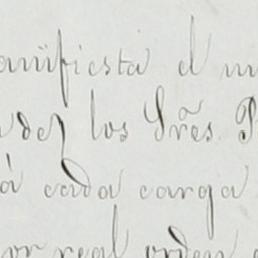 manifiesta el
los Sres.
á cada carga
por real orden